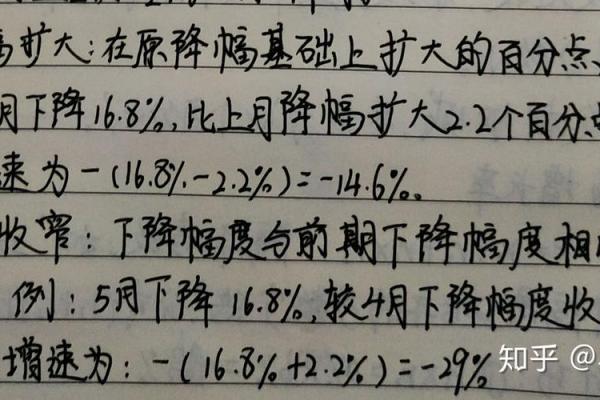 扩大:在原降幅基础上扩大的百分点、
月下降16.8%,比上月降幅扩大2.2个百分
速为-(16.8%-2.2%)=-14.6%。
收窄:下降幅度与前期下降幅度相
例:5月下降16.8%,较4月下降幅度收
增速为:-(16.8%+2.2%)=-29%
知乎 @